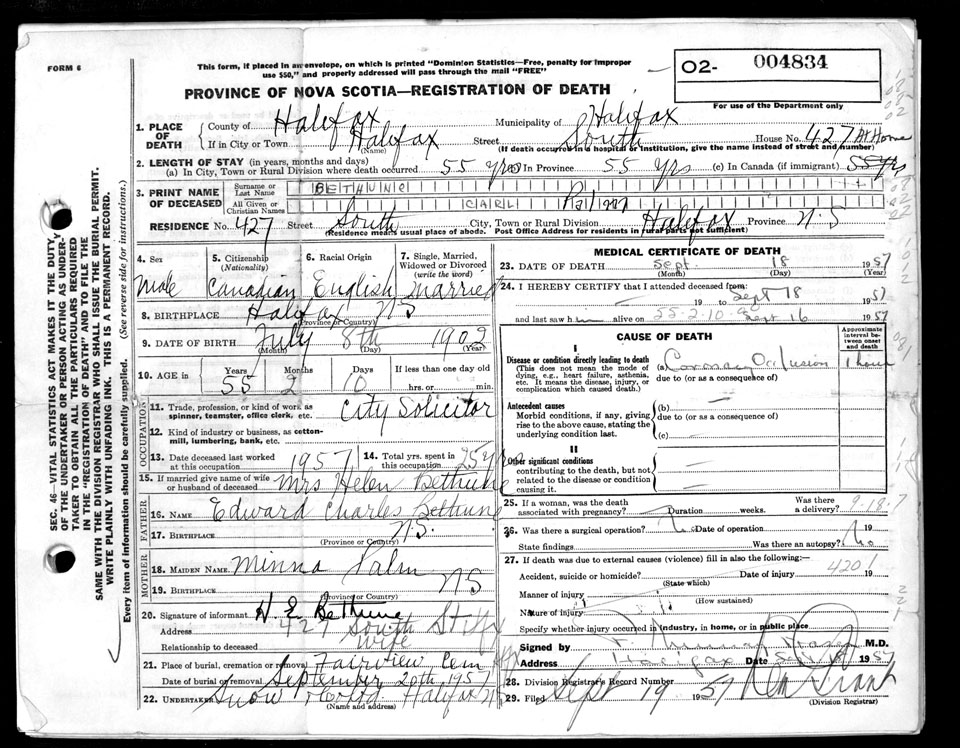 FORM 6
This form, if placed in an envelope, on which is printed "Dominion Statistics—Free, penalty for improper
use $50," and properly addressed will pass through the mail "FREE"
O2- 004834
For use of the Department only
PROVINCE OF NOVA SCOTIA—REGISTRATION OF DEATH
1. PLACE OF DEATH
County of Halifax Municipality of Halifax
If in City or Town Halifax Street South House No. 427 At Home
(Name) (If death occurred in a hospital or institution, give the name instead of street and number)
2. LENGTH OF STAY (in years, months and days)
(a) In City, Town or Rural Division where death occurred 55 yrs (b) In Province 55 yrs (c) In Canada (if immigrant) 55 yrs
3. PRINT NAME OF DECEASED
Surname or Last Name BETHUNE
All Given or Christian Names CARL
RESIDENCE No. 427 Street South City, Town or Rural Division Halifax Province N.S
(Residence means usual place of abode. Post Office Address for residents in rural parts not sufficient)
4. Sex Male
5. Citizenship (Nationality) Canadian
6. Racial Origin English
7. Single, Married, Widowed or Divorced (write the word) Married
8. BIRTHPLACE Halifax NS
(Province or Country)
9. DATE OF BIRTH July 8th 1902
(Month) (Day) (Year)
10. AGE in Years Months Days If less than one day old
55 2 10 hrs. or min.
OCCUPATION
11. Trade, profession, or kind of work as spinner, teamster, office clerk, etc. City Solicitor
12. Kind of industry or business, as cotton-mill, lumbering, bank, etc.
13. Date deceased last worked at this occupation 1957
14. Total yrs. spent in this occupation 25 yrs
15. If married give name of wife or husband of deceased Mrs Helen Bethune
FATHER
16. NAME Edward Charles Bethune
17. BIRTHPLACE N.S.
(Province or Country)
MOTHER
18. MAIDEN NAME Minna
19. BIRTHPLACE NS
(Province or Country)
20. Signature of informant H. E. Bethune
Address 427 South St Hfx
Relationship to deceased Wife
21. Place of burial, cremation or removal Fairview Cem Hfx
Date of burial or removal September 20th 1957
22. Undertaker Snow Halifax NS
(Name and address)
MEDICAL CERTIFICATE OF DEATH
23. DATE OF DEATH Sept. 18 1957
(Month) (Day) (Year)
24. I HEREBY CERTIFY that I attended deceased from:
19 to Sept 18 1957
and last saw him alive on Sept 16 1957
55-2-10
CAUSE OF DEATH
Approximate interval between onset and death
I
Disease or condition directly leading to death
(This does not mean the mode of dying, e.g., heart failure, asthenia, etc. It means the disease, injury, or complication which caused death.)
(a) Coronary Occlusion 1 hour
due to (or as a consequence of)
Antecedent causes
Morbid conditions, if any, giving rise to the above cause, stating the underlying condition last.
(b)
due to (or as a consequence of)
(c)
II
Other significant conditions
contributing to the death, but not related to the disease or condition causing it.
25. If a woman, was the death associated with pregnancy? Duration weeks. Was there a delivery?
26. Was there a surgical operation? Date of operation 19
State findings Was there an autopsy? No
27. If death was due to external causes (violence) fill in also the following:—
4201
Accident, suicide or homicide? Date of injury 19
(State which)
Manner of injury
(How sustained)
Nature of injury
Specify whether injury occurred in industry, in home, or in public place
Signed by M.D.
Address Halifax Date Sept 1957
28. Division Registrar's Record Number
29. Filed Sept 19 1957
(Division Registrar)
SEC. 46—VITAL STATISTICS ACT MAKES IT THE DUTY
OF THE UNDERTAKER OR PERSON ACTING AS UNDER-
TAKER TO OBTAIN ALL THE PARTICULARS REQUIRED
IN THE "REGISTRATION OF DEATH" AND TO FILE THE
SAME WITH THE DIVISION REGISTRAR WHO SHALL ISSUE THE BURIAL PERMIT.
WRITE PLAINLY WITH UNFADING INK. THIS IS A PERMANENT RECORD.
Every item of information should be carefully supplied. (See reverse side for instructions.)